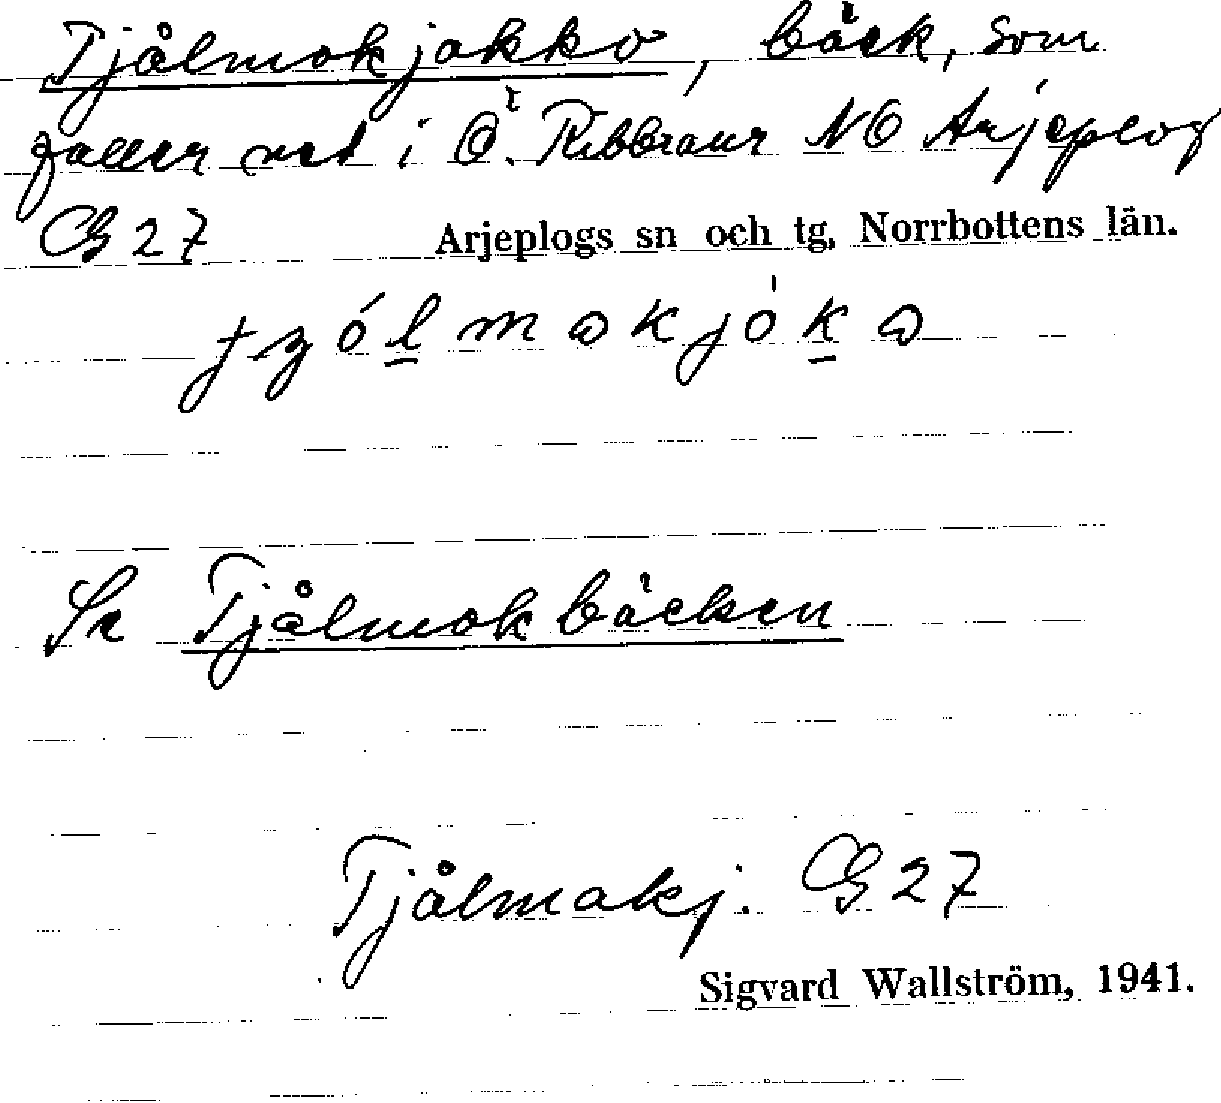 Tjålmokjokko, bäck, som
faller ned i Ö. Ribbraur NO Arjeplog
CG 27 Arjeplogs sn och tg, Norrbottens län.
Se Tjålmokbäcken
Tjålmakj. CG 27
Sigvard Wallström, 1941.